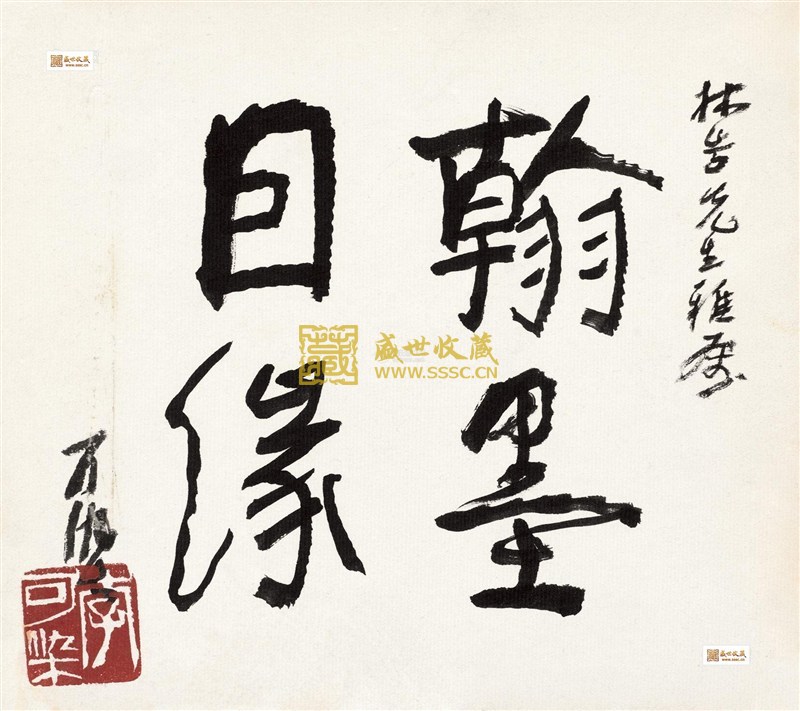 林先生雅属
翰墨
囙缘
可染
李
可染
盛世收藏
www.sssc.cn
藏
盛世收藏
WWW.SSSC.CN
盛世收藏
www.sssc.cn